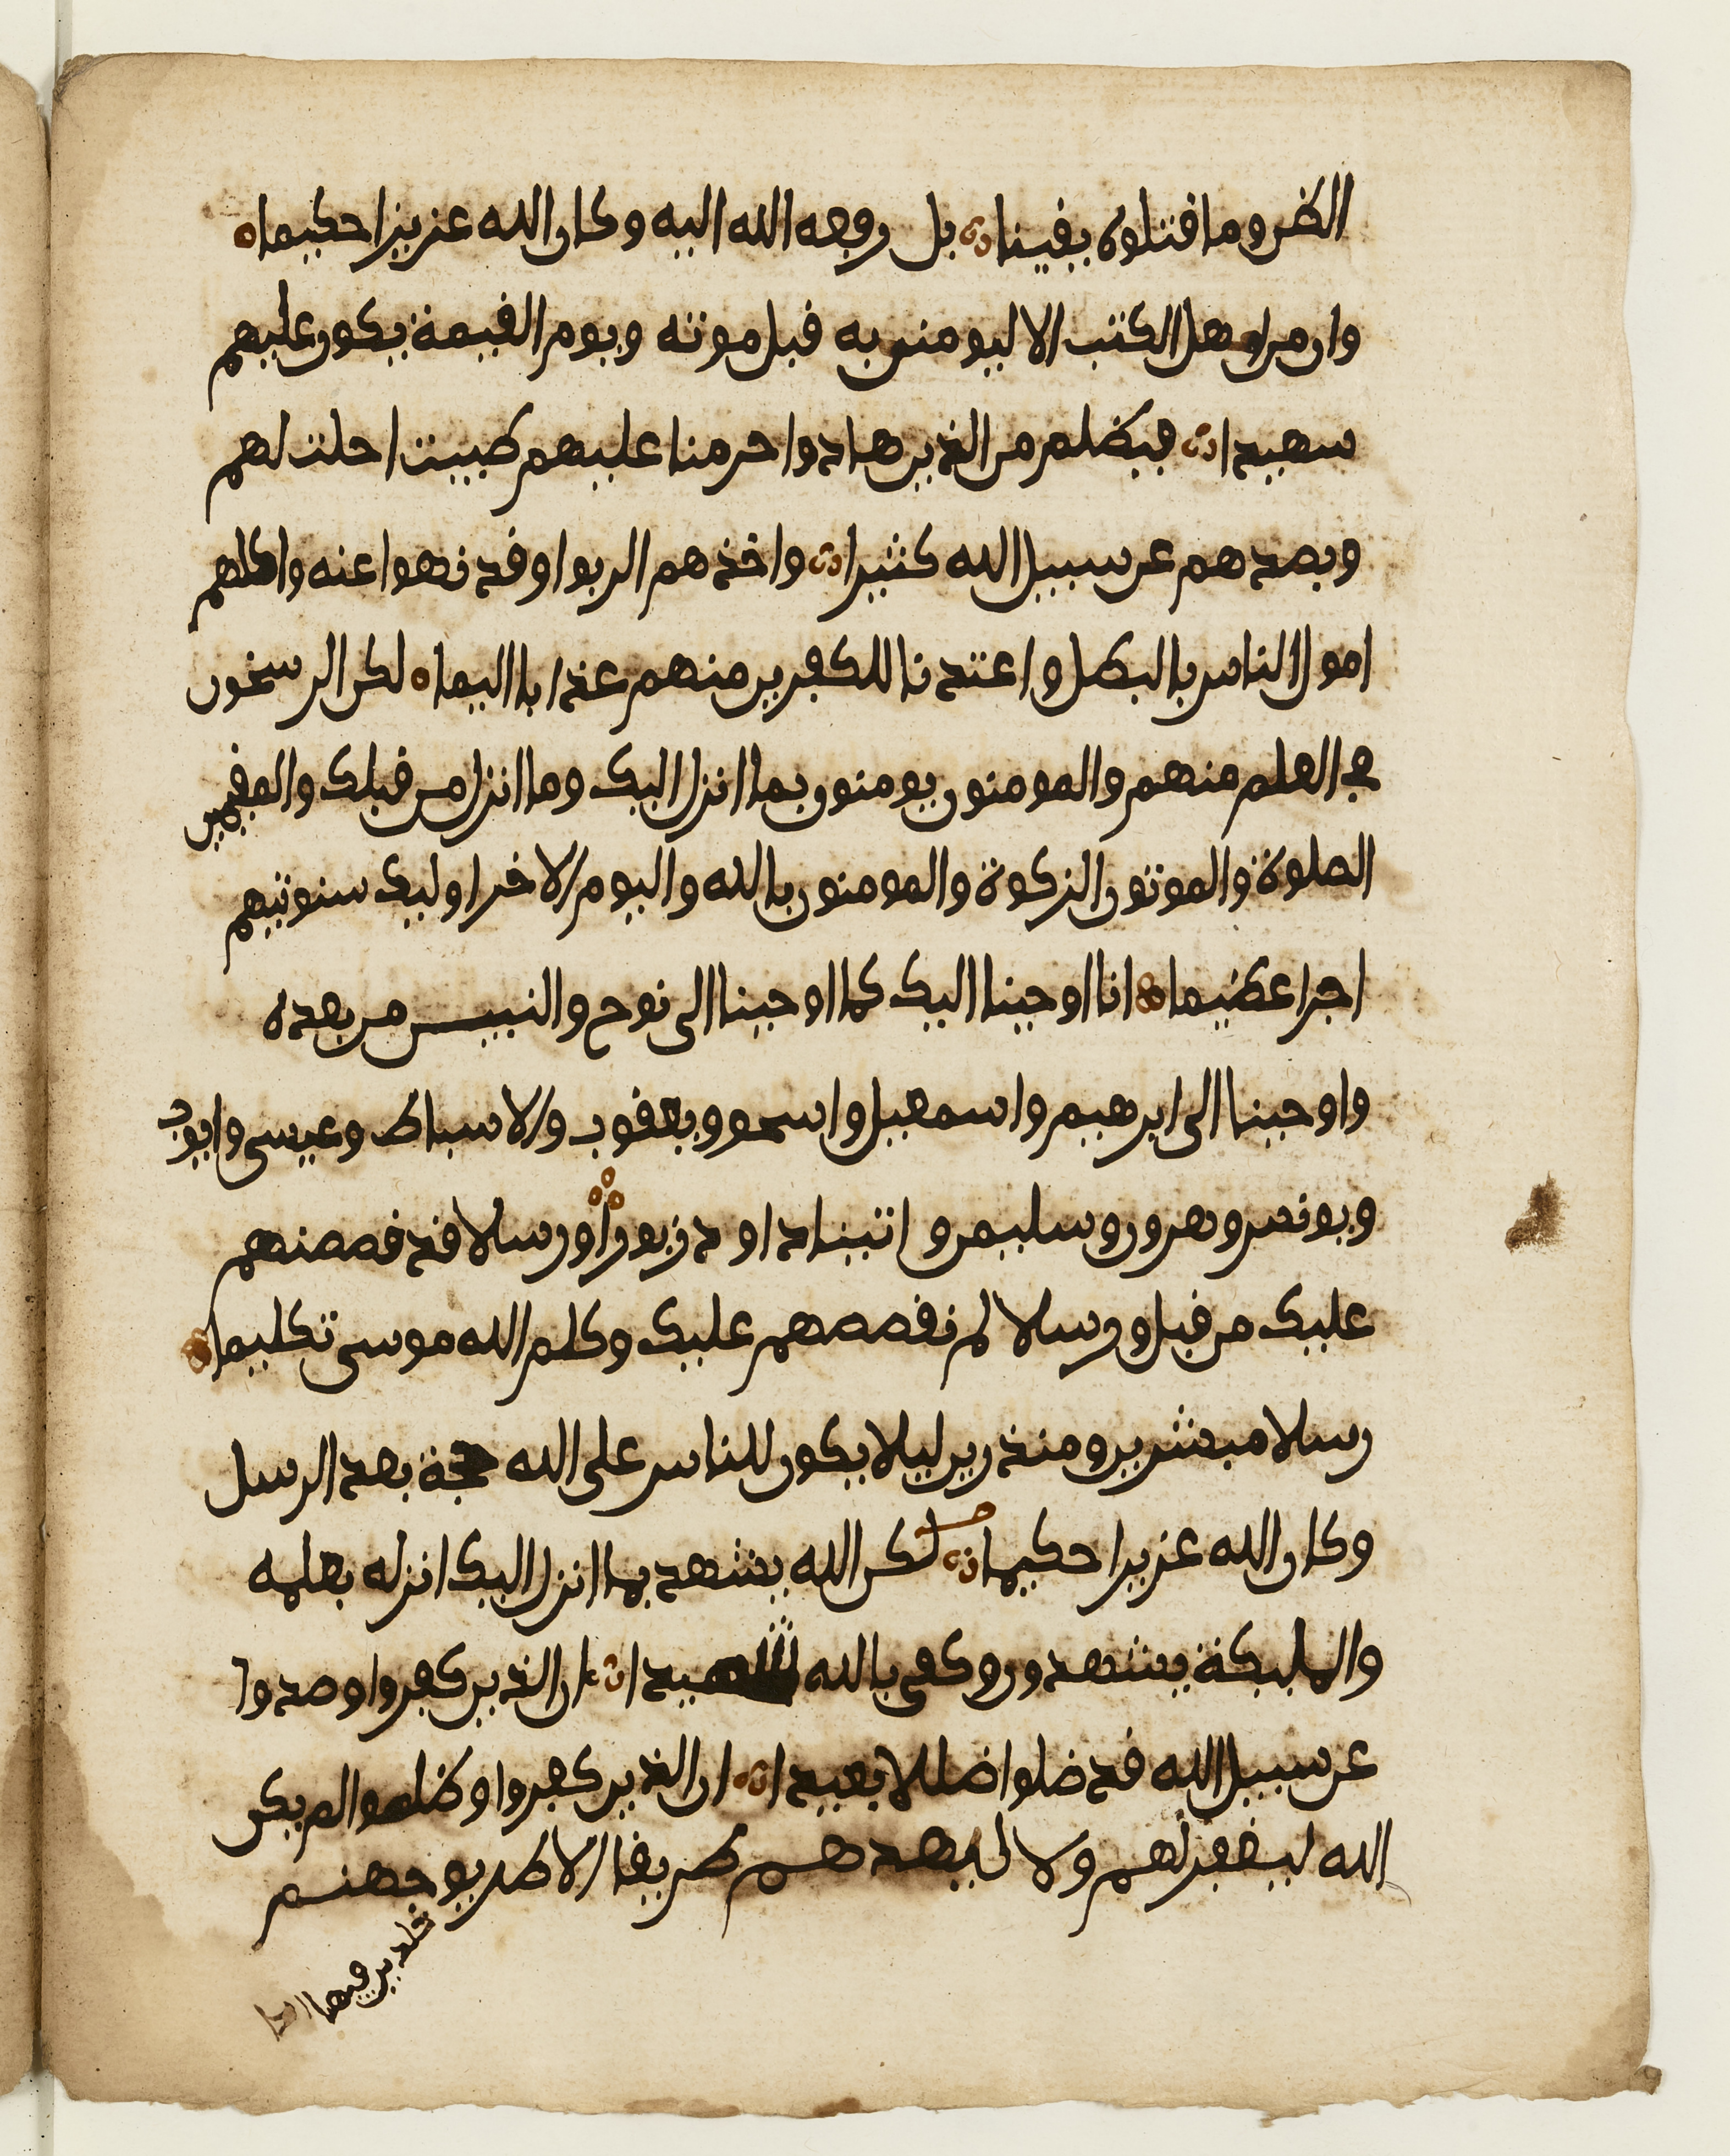 الظن وما قتلوه يقينا بل رفعه الله اليه وكان الله عزيزا حكيما
وان من اهل الكتب الا ليومنن به قبل موته ويوم القيمة يكون عليهم
سهيدا فبظلم من الذين هادوا حرمنا عليهم طيبت احلت لهم
وبصدهم عن سبيل الله كثيرا واخذهم الربوا وقد نهوا عنه واكلهم
امول الناس بالبطل واعتدنا للكفرين منهم عذابا اليما لكن الرسخون
في العلم منهم والمومنون يومنون بما انزل اليك وما انزل من قبلك والمقيمين
الصلوة والموتون الزكوة والمومنون بالله واليوم الاخر اوليك سنوتيهم
اجرا عظيما انا اوحينا اليك كما اوحينا الى نوح والنبيين من بعده
واوحينا الى ابرهيم واسمعيل واسحق ويعقوب والاسباط وعيسى وايوب
ويونس وهرون وسليمن واتينا داود زبورا ورسلا قد قصصنهم
عليك من قبل ورسلا لم نقصصهم عليك وكلم الله موسى تكليما
رسلا مبشرين ومنذرين ليلا يكون للناس على الله حجة بعد الرسل
وكان الله عزيزا حكيما لكن الله يشهد بما انزل اليك انزله بعلمه
والمليكة يشهدون وكفى بالله شهيدا ان الذين كفروا وصدوا
عن سبيل الله قد ضلوا ضللا بعيدا ان الذين كفروا وظلموا لم يكن
الله ليغفر لهم ولا ليهديهم طريقا الا طريق جهنم
خلدين فيها ابدا